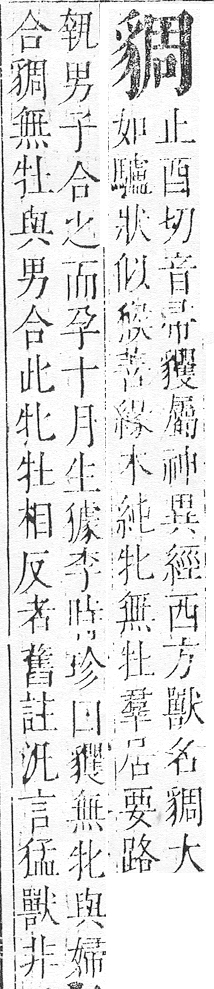 貐
止酉切音帚貜屬神異經西方獸名貐大
如驢狀似猴善緣木純牝無牡羣居要路
執男子合之而孕十月生據李時珍曰貜無牝與婦
合貐無牡與男合此牝牡相反者舊註汎言猛獸非